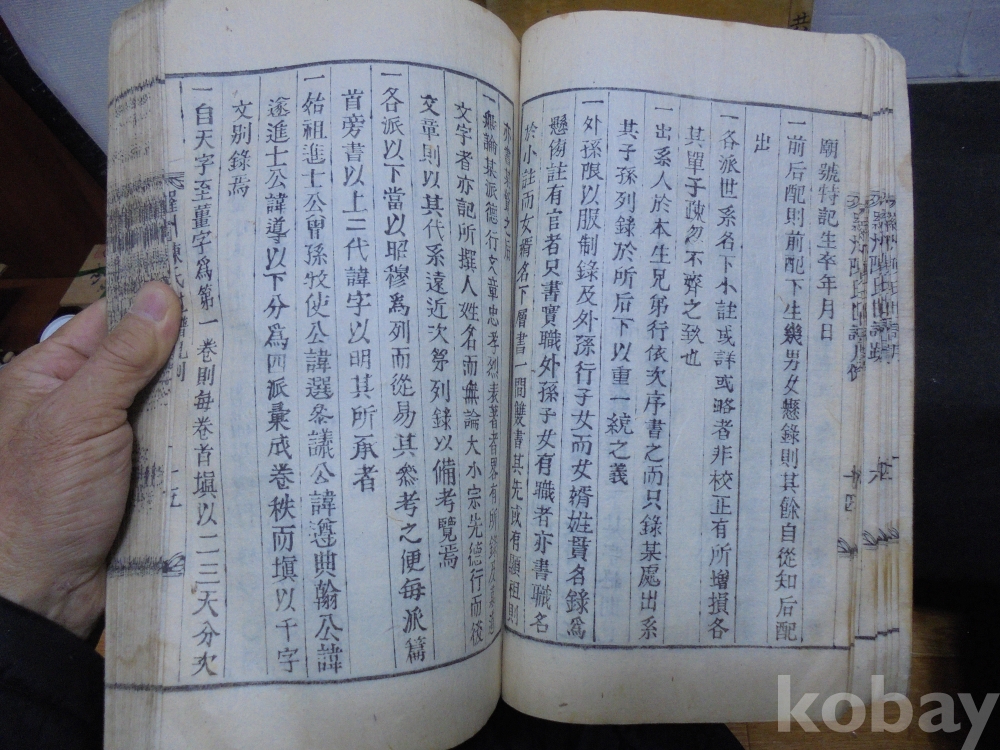 廟號特記生卒年月日
一前后配則前配下生幾男女懸錄則其餘自從知后配
出
一各派世系名下小註或詳或略者非校正有所增損各
其單子疎忽不齊之致也
一出系人於本生兄弟行依次序書之而只錄某處出系
其子孫列錄於所后下以重一統之義
一外孫限以服制錄及外孫行子女而女婿姓貫名錄爲
懸術註有官者只書實職外孫子女有職者亦書職名
於小註而女婿名下層書一間雙書其先或有顯祖則
一無論某派德行文章忠孝烈表著者畧有所錄及
文字者亦記所撰人姓名而無論大小宗先德行而後
文章則以其代系遠近次第列錄以備考覽焉
一各派以下當以昭穆爲列而從易其參考之便每派篇
首旁書以上三代諱字以明其所承者
一始祖進士公曾孫牧使公諱選參議公諱遵典翰公諱
遂進士公諱導以下分爲四派彙成卷秩而塡以千字
文別錄焉
一自天字至薑字爲第一卷則每卷首塡以一二三天分次
kobay